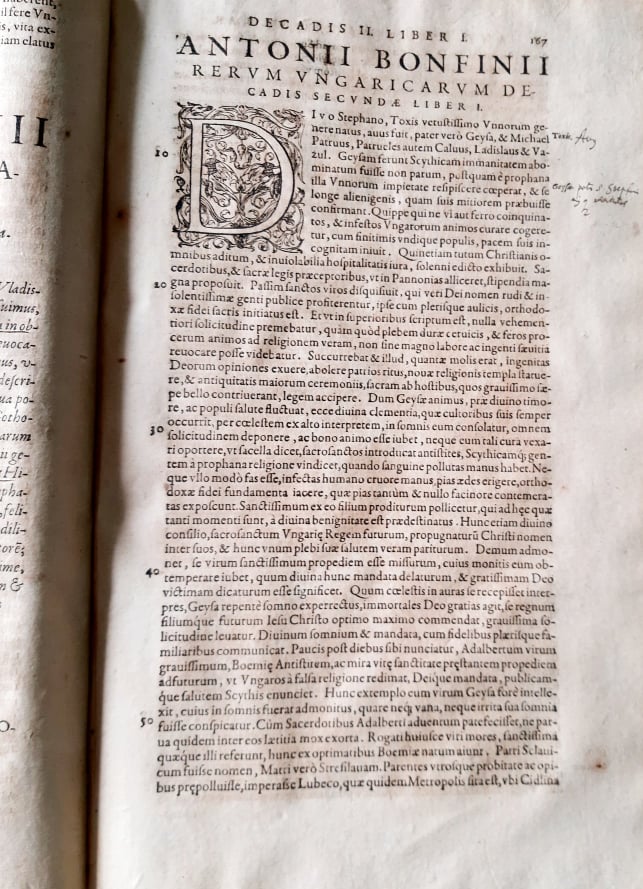 DECADIS II. LIBER I.
167
ANTONII BONFINII
RERVM VNGARICARVM DE-
CADIS SECVNDÆ LIBER I.
DIvo Stephano, Toxis vetustissimo Vnnorum ge-
nere natus, auus fuit, pater verò Geysa, & Michael
Patruus, Patrueles autem Caluus, Ladislaus & Va-
10
zul. Geysam ferunt Scythicam immanitatem abo-
minatum fuisse non parum, postquam è prophana
illa Vnnorum impietate respiscere cœperat, & se
longe alienigenis, quam suis mitiorem præbuisse
confirmant. Quippe qui ne vl aut ferro coinquina-
tos, & infestos Vngarorum animos curare cogere-
tur, cum finitimis vndique populis, pacem suis in-
cognitam iniuit. Quinetiam tutum Christianis o-
mnibus aditum, & inuiolabilia hospitalitatis iura, solenni edicto exhibuit. Sa-
cerdotibus, & sacræ legis præceptoribus, vt in Pannonias alliceret, stipendia ma-
20
gna proposuit. Passim sanctos viros disquisiuit, qui veri Dei nomen rudi & in-
solentissimæ genti publice profiterentur, ipse cum plerisque aulicis, orthodo-
xæ fidei sacris initiatus est. Et vt in superioribus scriptum est, nulla vehemen-
tiori solicitudine premebatur, quam quòd plebem duræ ceruicis, & feros pro-
cerum animos ad religionem veram, non sine magno labore ac ingenti sæuitia
reuocare posse videbatur. Succurrebat & illud, quantæ molis erat, ingenitas
Deorum opiniones exuere, abolere patrios ritus, nouæ religionis templa statue-
re, & antiquitatis maiorum ceremoniis, sacram ab hostibus, quos grauissimo sæ-
pe bello contriuerant, legem accipere. Dum Geysæ animus, præ diuino timo-
re, ac populi salute fluctuat, ecce diuina clementia, quæ cultoribus suis semper
30
occurrit, per cœlestem ex alto interpretem, in somnis eum consolatur, omnem
solicitudinem deponere, ac bono animo esse iubet, neque eum tali cura vexa-
ri oportere, vt sacella dicet, sacrosanctos introducat antistites, Scythicamq́; gen-
tem à prophana religione vindicet, quando sanguine pollutas manus habet. Ne-
que vllo modò fas esse, infectas humano cruore manus, pias ædes erigere, ortho-
doxæ fidei fundamenta iacere, quæ pias tantùm & nullo facinore contemera-
tas exposcunt. Sanctissimum ex eo filium proditurum pollicetur, qui ad hęc quæ
tanti momenti sunt, à diuina benignitate est prædestinatus. Hunc etiam diuino
consilio, sacrosanctum Vngarię Regem futurum, propugnaturũ Christi nomen
inter suos, & hunc vnum plebi suæ salutem veram pariturum. Demum admo-
net, se virum sanctissimum propediem esse missurum, cuius monitis eum ob-
40
temperare iubet, quum diuina hunc mandata delaturum, & gratissimam Deo
victimam dicaturum esse significet. Quum cœlestis in auras se recepisset inter-
pres, Geysa repentè somno experrectus, immortales Deo gratias agit, se regnum
filiumque futurum Iesu Christo optimo maximo commendat, grauissima so-
licitudine leuatur. Diuinum somnium & mandata, cum fidelibus plærisque fa-
miliaribus communicat. Paucis post diebus sibi nunciatur, Adalbertum virum
grauissimum, Boemię Antistitem, ac mira vitę sanctitate pręstantem propediem
adfuturum, vt Vngaros à falsa religione redimat, Deique mandata, publicam-
q́ue salutem Scythis enunciet. Hunc extemplo cum virum Geysa forè intelle-
xit, cuius in somnis fuerat admonitus, quare neq; vana, neque irrita sua somnia
50
fuisse conspicatur. Cùm Sacerdotibus Adalberti aduentum patefecisset, ne par-
ua quidem inter eos lætitia mox exorta. Rogati huiusce viri mores, sanctissima
quæq́ue illi referunt, hunc ex optimatibus Boemiæ natum aiunt. Patri Sclaui-
cum fuisse nomen, Matri verò Stresislauam. Parentes vtrosque probitate ac opi-
bus prępolluisse, imperasse Lubeco, quæ quidem Metropolis sita est, vbi Cidlina